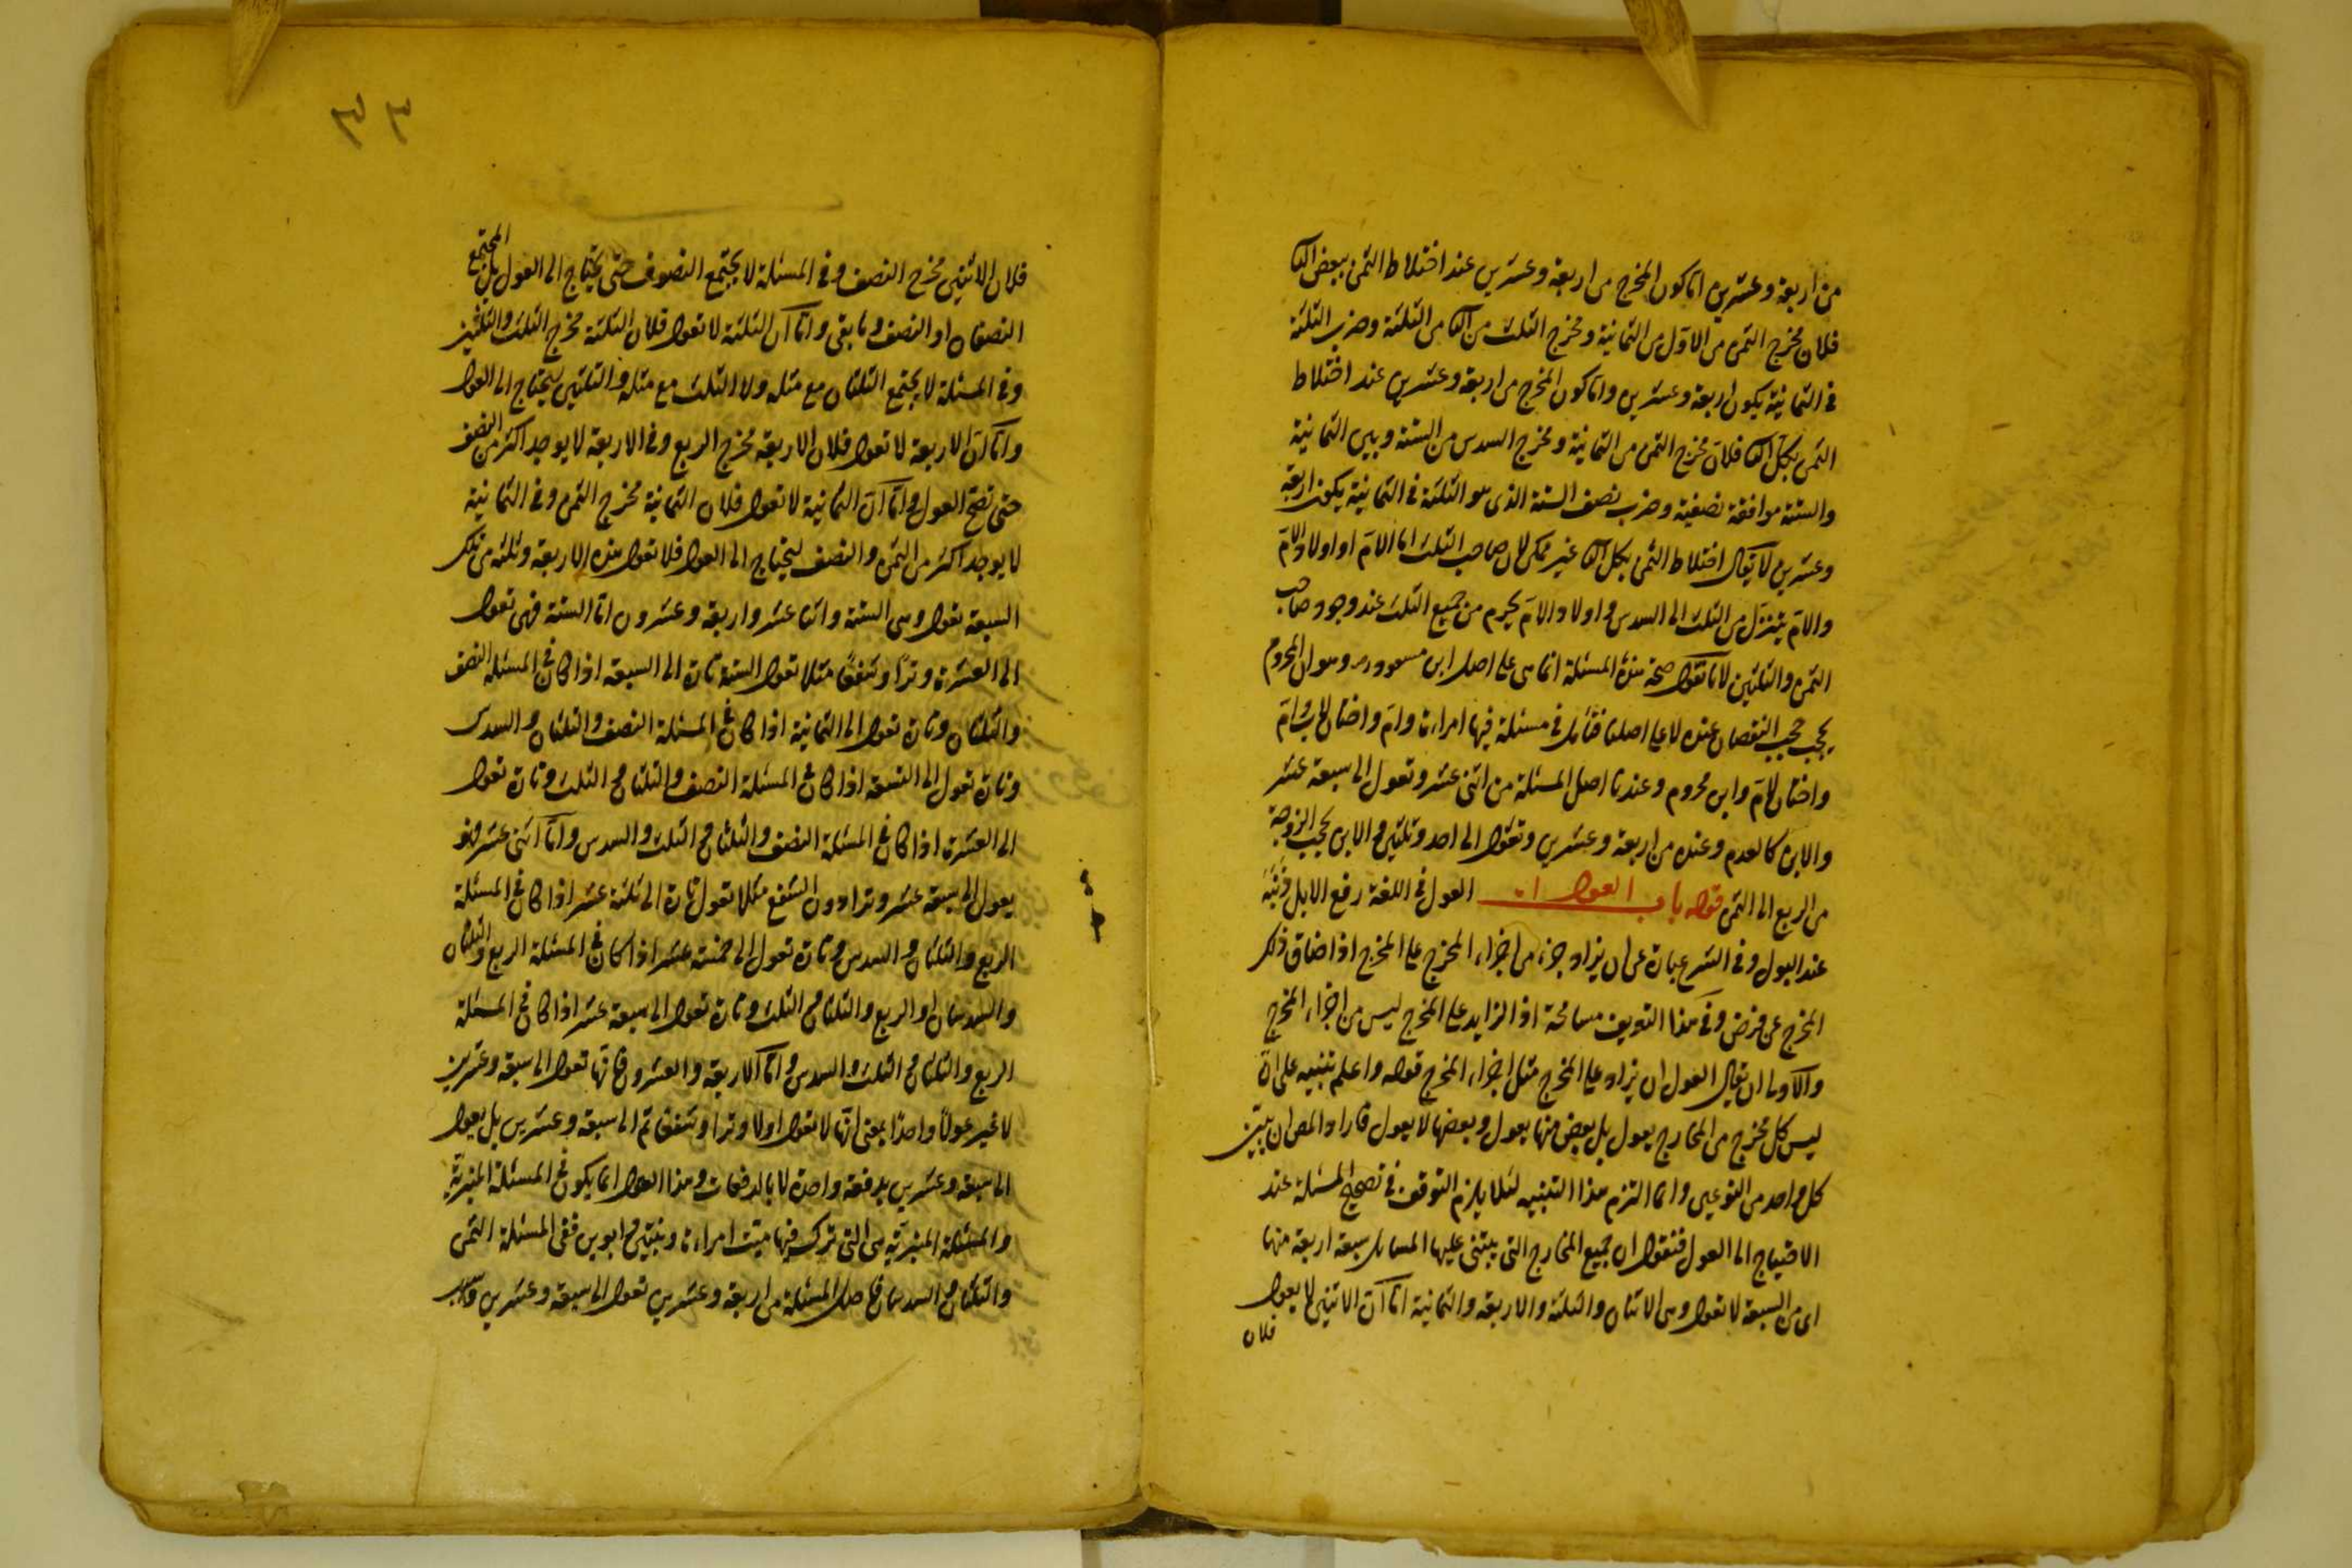 من اربعة وعشرين اما كون المخرج من اربعة وعشرين عند اختلاط الثمن ببعض الثا
فلان مخرج الثمن من الاول من الثمانية ومخرج الثلث من الثا من الثلثة وضرب الثلثة
فى الثمانية يكون اربعة وعشرين واما كون المخرج من اربعة وعشرين عند اختلاط
الثمن بكل الثا فلان مخرج الثمن من الثمانية ومخرج السدس من الستة وبين الثمانية
والستة موافقة نصفية وضرب نصف الستة الذى هو الثلثة فى الثمانية يكون اربعة
وعشرين لا يقال اختلاط الثمن بكل الثا غير ممكن لان صاحب الثلث اما الام او اولاد الام
والام يتنزل من الثلث الى السدس و اولاد الام يحرم من جميع الثلث عند وجود صاحب
الثمن والثلثين لانا نقول صحة هذه المسئلة انما هى على اصل ابن مسعود رض وهو ان المحروم
يحجب حجب النقصان عنده لا على اصلنا فتأمل فى مسئلة فيها امراءة وام واختان لاب وام
واختان لام وابن محروم وعندنا اصل المسئلة من اثنى عشر وتعول الى سبعة عشر
والابن كالعدم وعنده من اربعة وعشرين وتعول الى احد وثلثين والابن يحجب الزوجة
من الربع الى الثمن قوله باب العول العول فى اللغة رفع الابل ذنبه
عند البول وفى الشرع عبارة عن ان يزاد جزء من اجزاء المخرج على المخرج اذا ضاق ذلك
المخرج عن فرض وفى هذا التعريف مسامحة اذ الزايد على المخرج ليس من اجزاء المخرج
والاولى ان يقال العول ان يزاد على المخرج مثل اجزاء المخرج قوله واعلم تنبيه على ان
ليس كل مخرج من المخارج يعول بل بعض منها يعول وبعضها لا يعول فاراد المص ان يبين
كل واحد من النوعين وانما التزم هذا التنبيه لئلا يلزم التوقف فى تصحيح المسئلة عند
الاحتياج الى العول فنقول ان جميع المخارج التى يبتنى عليها المسايل سبعة اربعة منها
اى من السبعة لا تعول وهى الاثنان والثلثة والاربعة والثمانية اما ان الاثنين لا يعول
فلان
فلان الاثنين مخرج النصف وفى المسئلة لا يجتمع النصوف حتى يحتاج الى العول بل المجتمع
النصفان او النصف وما بقى واما ان الثلثة لا تعول فلان الثلثة مخرج الثلث والثلثين
وفى المسئلة لا يجتمع الثلثان مع مثله ولا الثلث مع مثله والثلثين ليحتاج الى العول
واما ان الاربعة لا تعول فلان الاربعة مخرج الربع وفى الاربعة لا يوجد اكثر من النصف
حتى تصح العول واما ان الثمانية لا تعول فلان الثمانية مخرج الثمن وفى الثمانية
لا يوجد اكثر من الثمن والنصف ليحتاج الى العول فلا تعول هذه الاربعة وثلثة من تلك
السبعة تعول وهى الستة واثنا عشر واربعة وعشرون اما الستة فهى تعول
الى العشرة وترا وشفعا مثلا تعول الستة تارة الى السبعة اذا كان فى المسئلة النصف
والثلثان وتارة تعول الى الثمانية اذا كان فى المسئلة النصف والثلثان والسدس
وتارة تعول الى التسعة اذا كان فى المسئلة النصف والثلثان والثلث وتارة تعول
الى العشرة اذا كان فى المسئلة النصف والثلثان والثلث والسدس واما اثنى عشر فهو
يعول الى سبعة عشر وترا دون الشفع مثلا تعول تارة الى ثلثة عشر اذا كان فى المسئلة
الربع والثلثان والسدس وتارة تعول الى خمسة عشر اذا كان فى المسئلة الربع والثلثان
والسدسان او الربع والثلثان والثلث وتارة تعول الى سبعة عشر اذا كان فى المسئلة
الربع والثلثان والثلث والسدس واما الاربعة والعشرون فانها تعول الى سبعة وعشرين
لا غير عولا واحدا بمعنى انها لا تعول اولا وترا وشفعا ثم الى سبعة وعشرين بل يعول
الى سبعة وعشرين بدفعة واحدة لا بالدفعات وهذا العول انما يكون فى المسئلة المنبرية
والمسئلة المنبرية هى التى ترك فيها ميت امراءة وبنتين وابوين ففى المسئلة الثمن
والثلثان والسدسان فاصل المسئلة من اربعة وعشرين تعول الى سبعة وعشرين